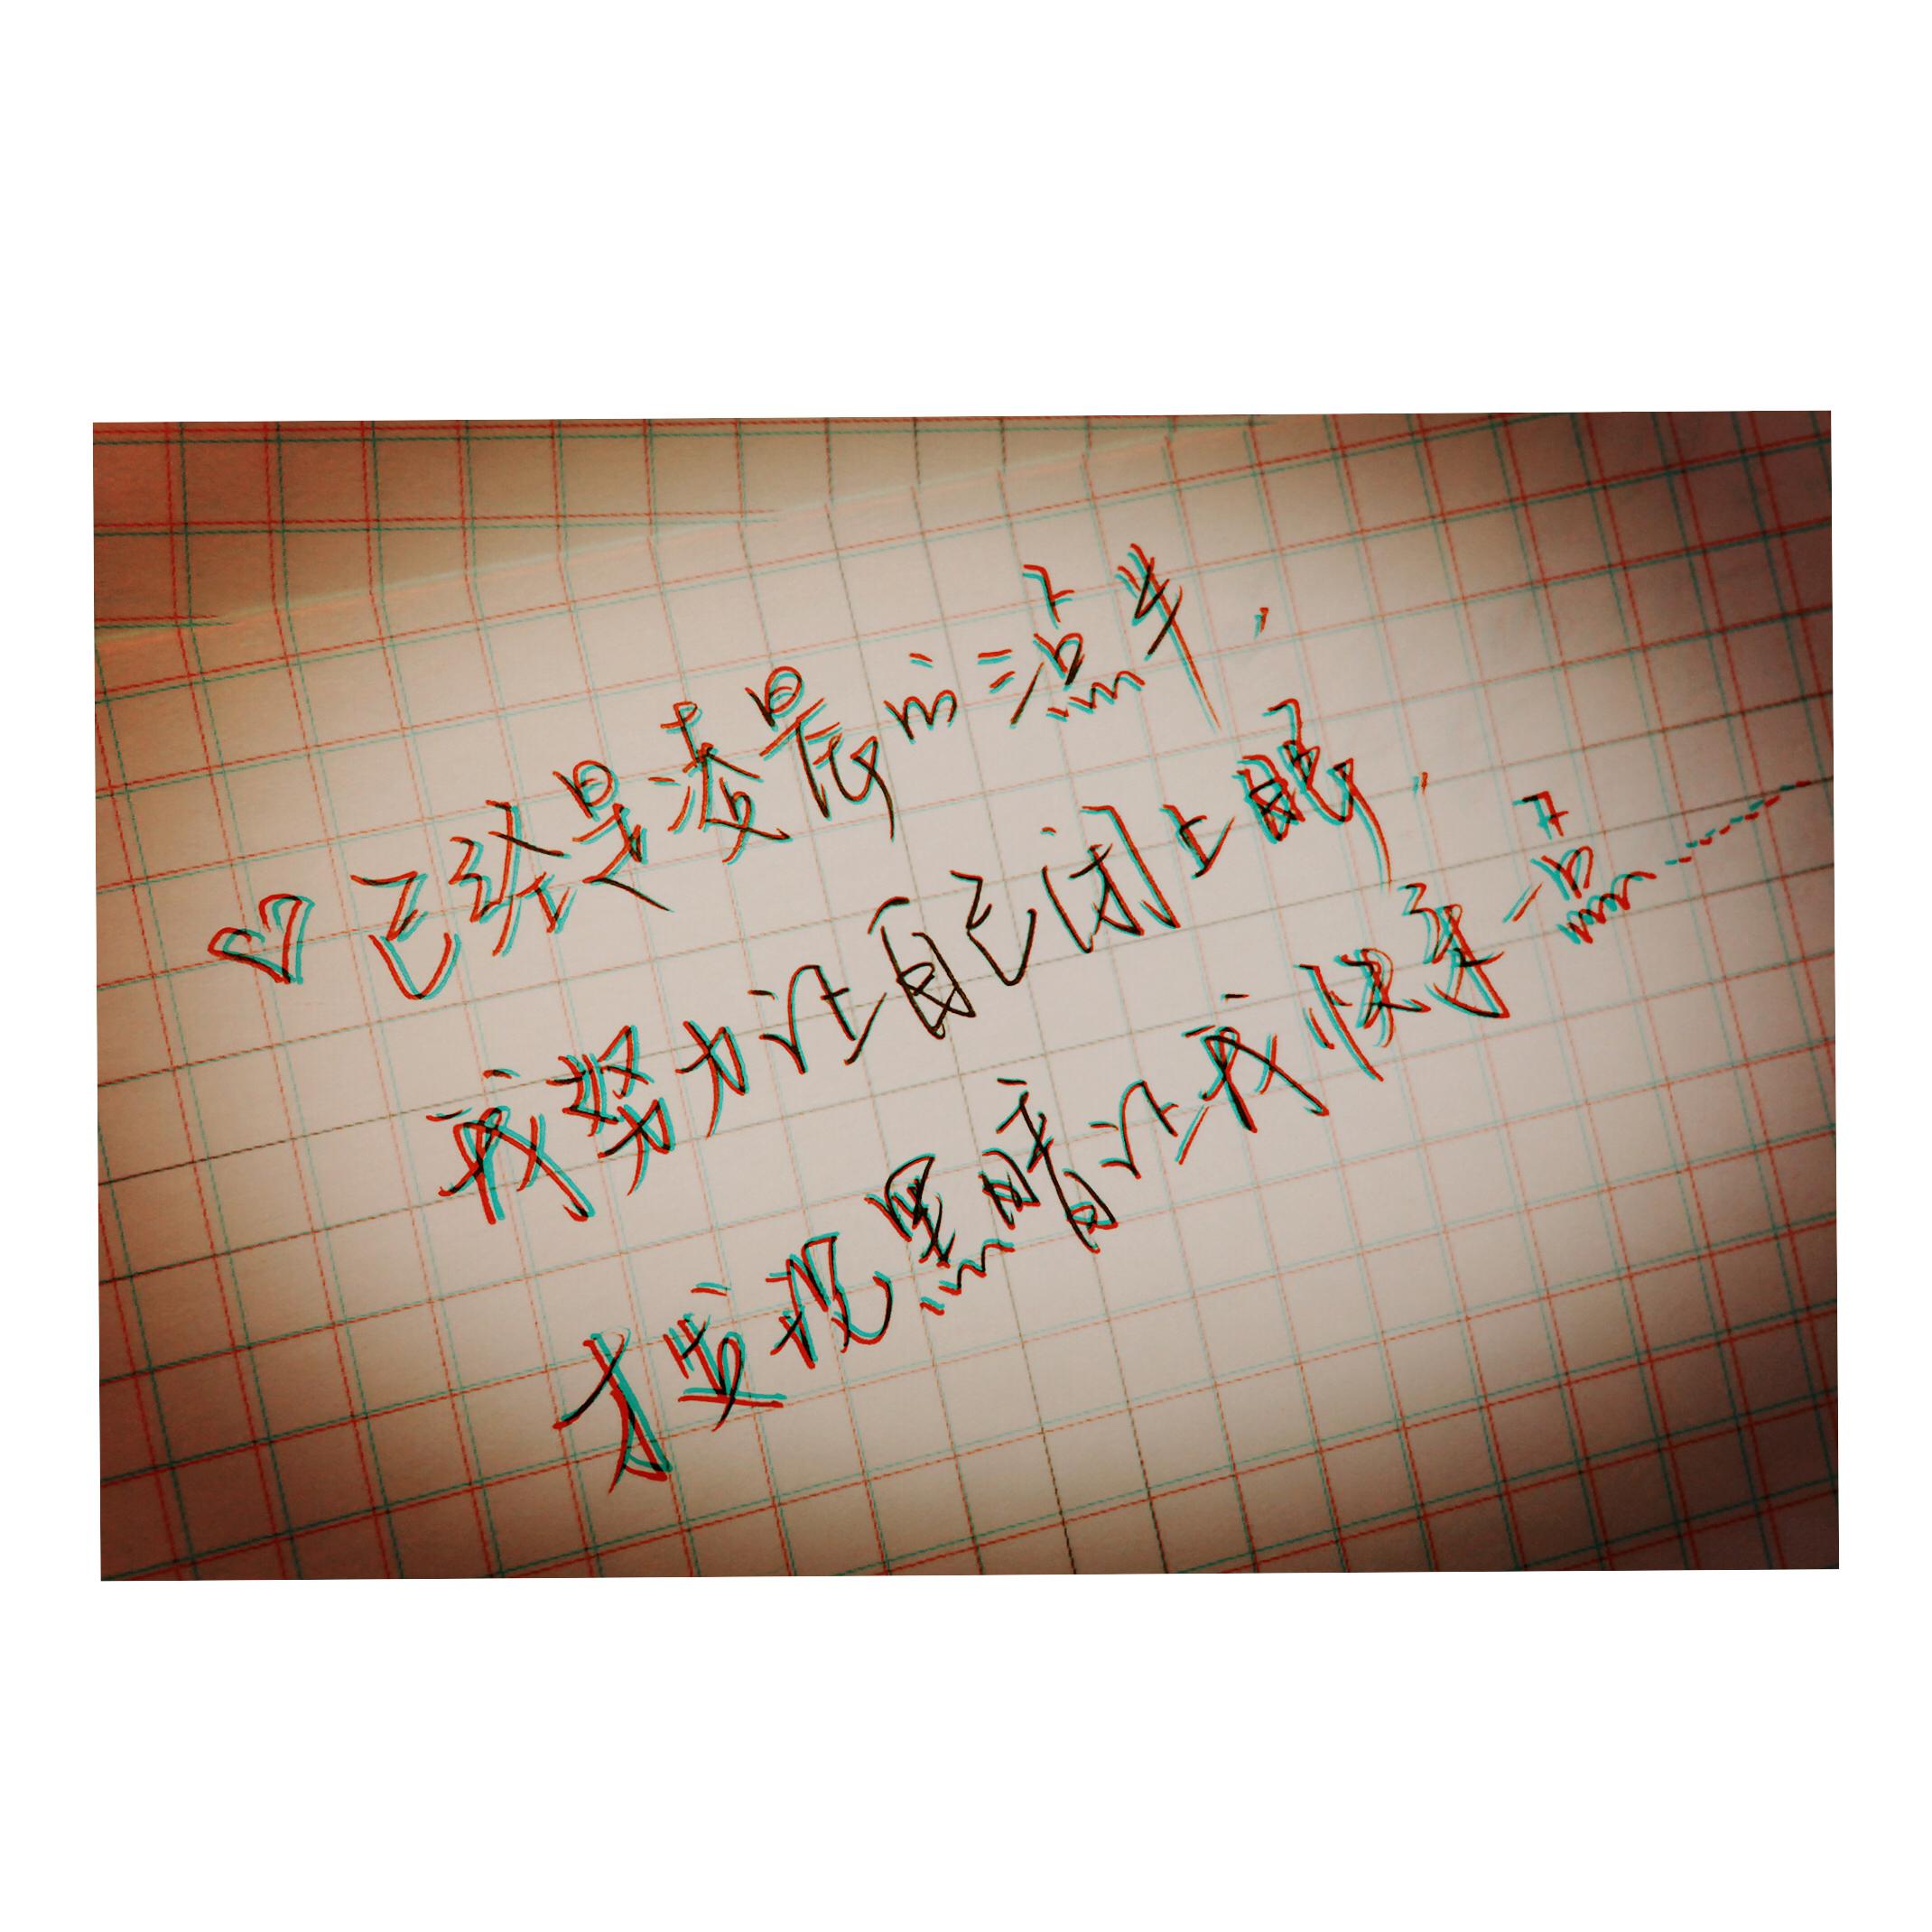 ♡已经是凌晨的三点半,
我努力让自己闭上眼,
才发现黑暗让我快乐一点……